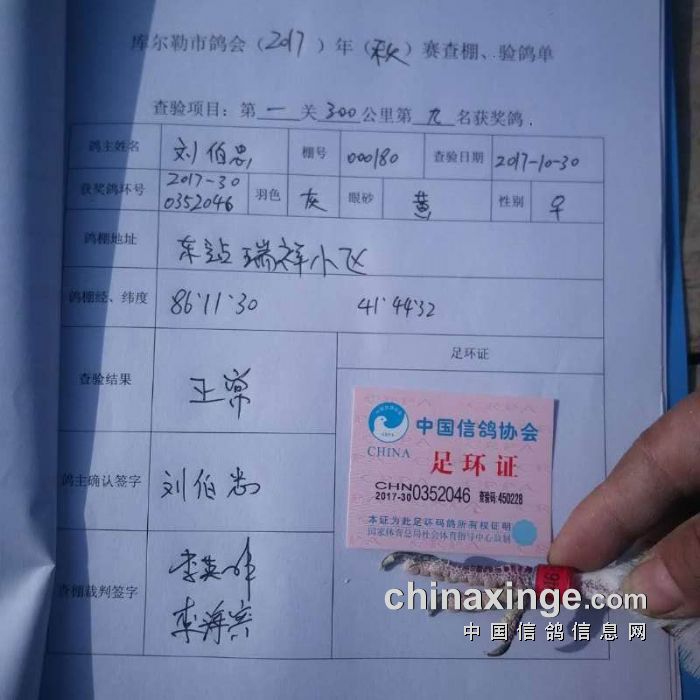 库尔勒市鸽会（2017）年（秋）赛查棚、验鸽单
查验项目：第一关300公里第九名获奖鸽.
鸽主姓名 刘伯忠 棚号 000180 查验日期 2017-10-30
获奖鸽环号 2017-30 0352046 羽色 灰 眼砂 黄 性别 ♀
鸽棚地址 东站瑞祥小飞
鸽棚经、纬度 86°11'30 41°44'32
足环证
查验结果 正常
中国信鸽协会
CHINA
足环证
CHN
2017-30 0352046 查验码:450228
本证为此足环码鸽所有权证明
国家体育总局社会体育指导中心监制
鸽主确认签字 刘伯忠
查棚裁判签字 李英
李海宾
chinaxinge.com
中国信鸽信息网